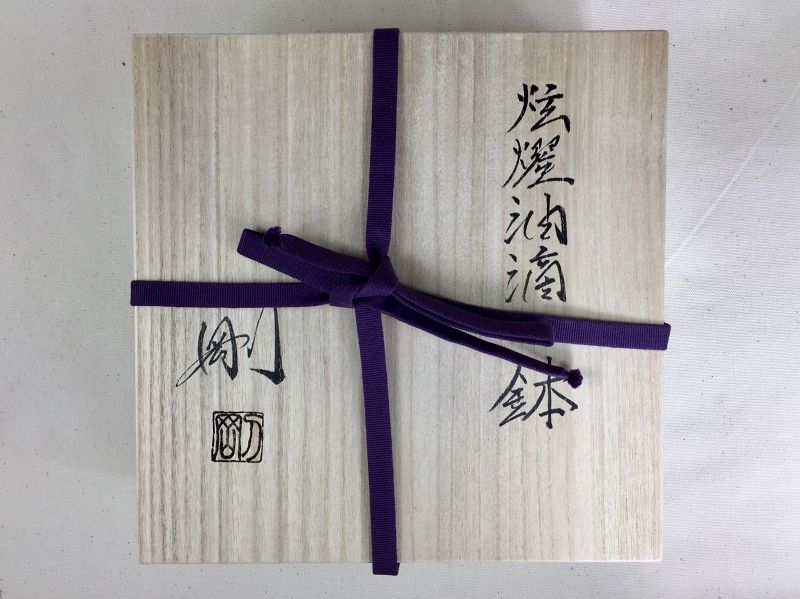 炫燿油滴
鉢
剛
剛